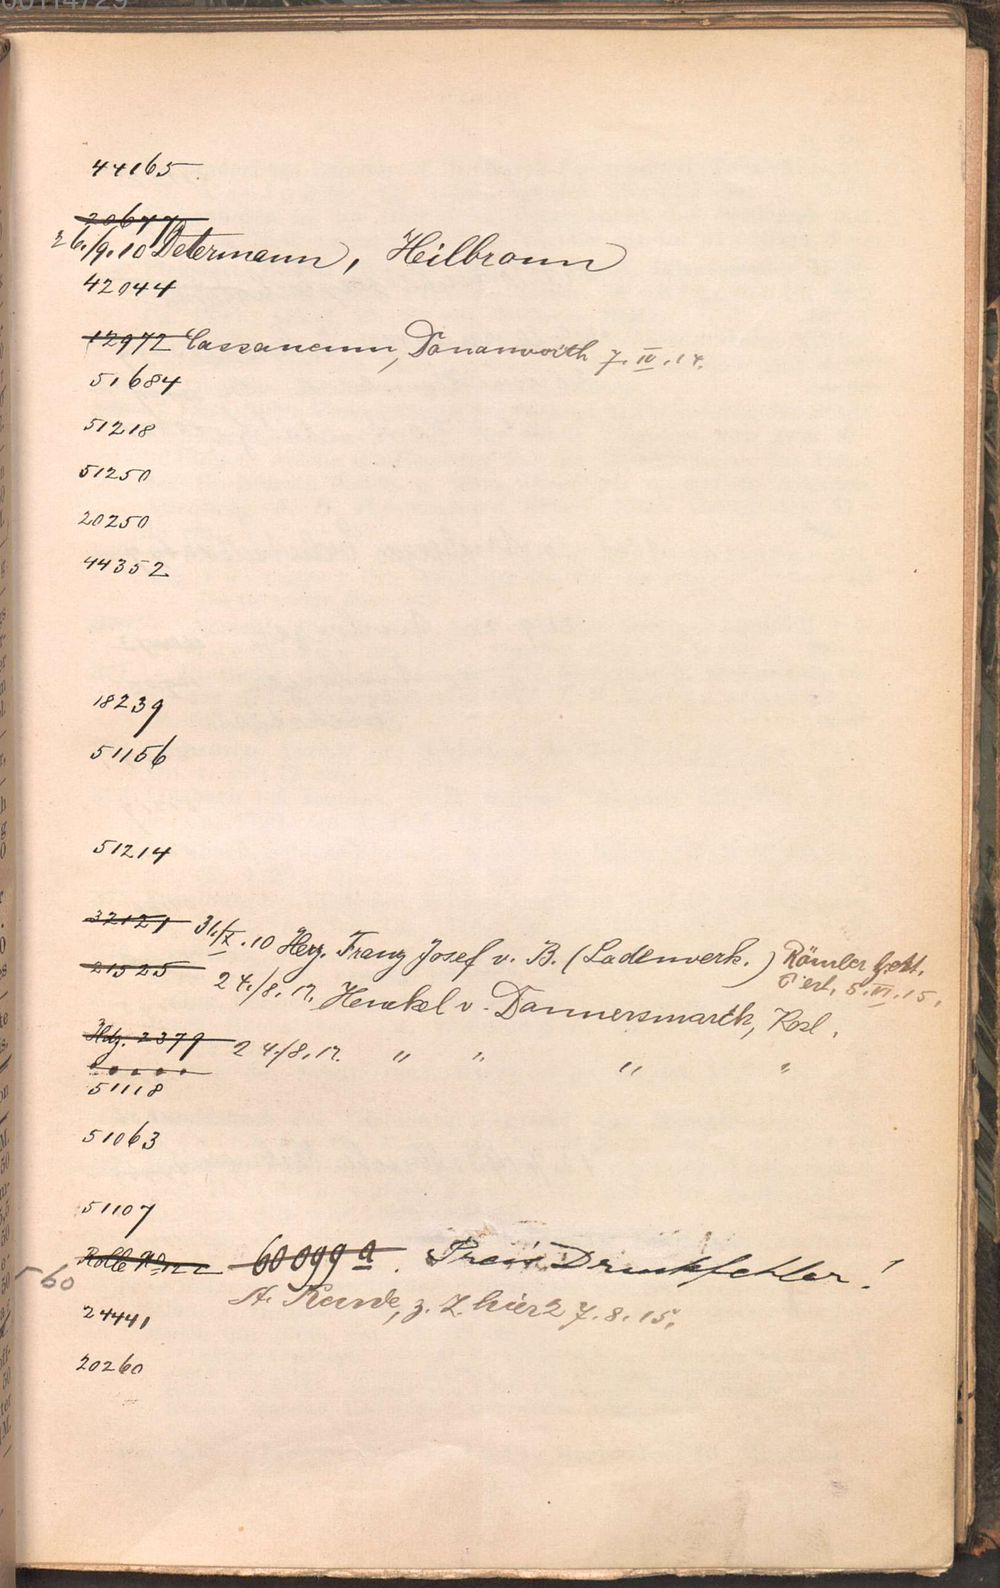 44165
20677
26./9.10 Determann, Heilbronn
42044
12972 Cassanemun, Donauwörth 7.IV.14.
51684
51218
51250
20250
44352
18239
51156
51214
32121 31./X.10 Herz. Franz Josef v. B. (Ladenwerk.) Römler
5.VI.15.
21525 24./8.12. Henckel v. Donnersmarck,
Hdz. 2379 24./8.12. " " " "
51118
51063
51107
Rolle No 60099 a. Preis Druckfehler!
60
A. z. Z. hier 27.8.15.
24441
20260